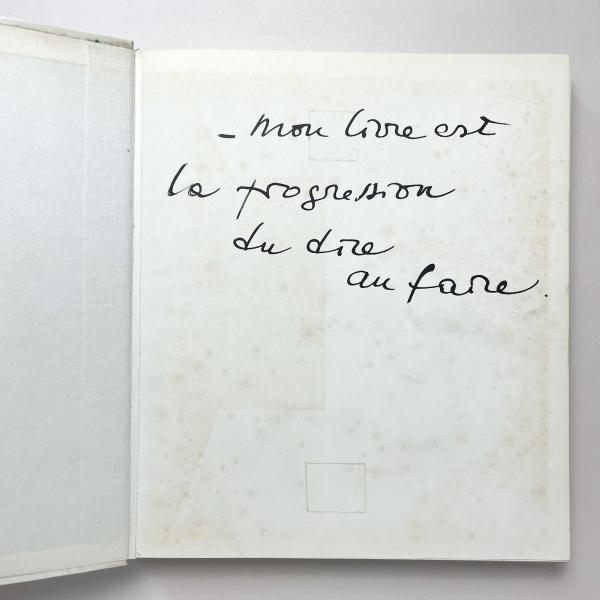 - mon livre est
la progression
du dire
au faire.